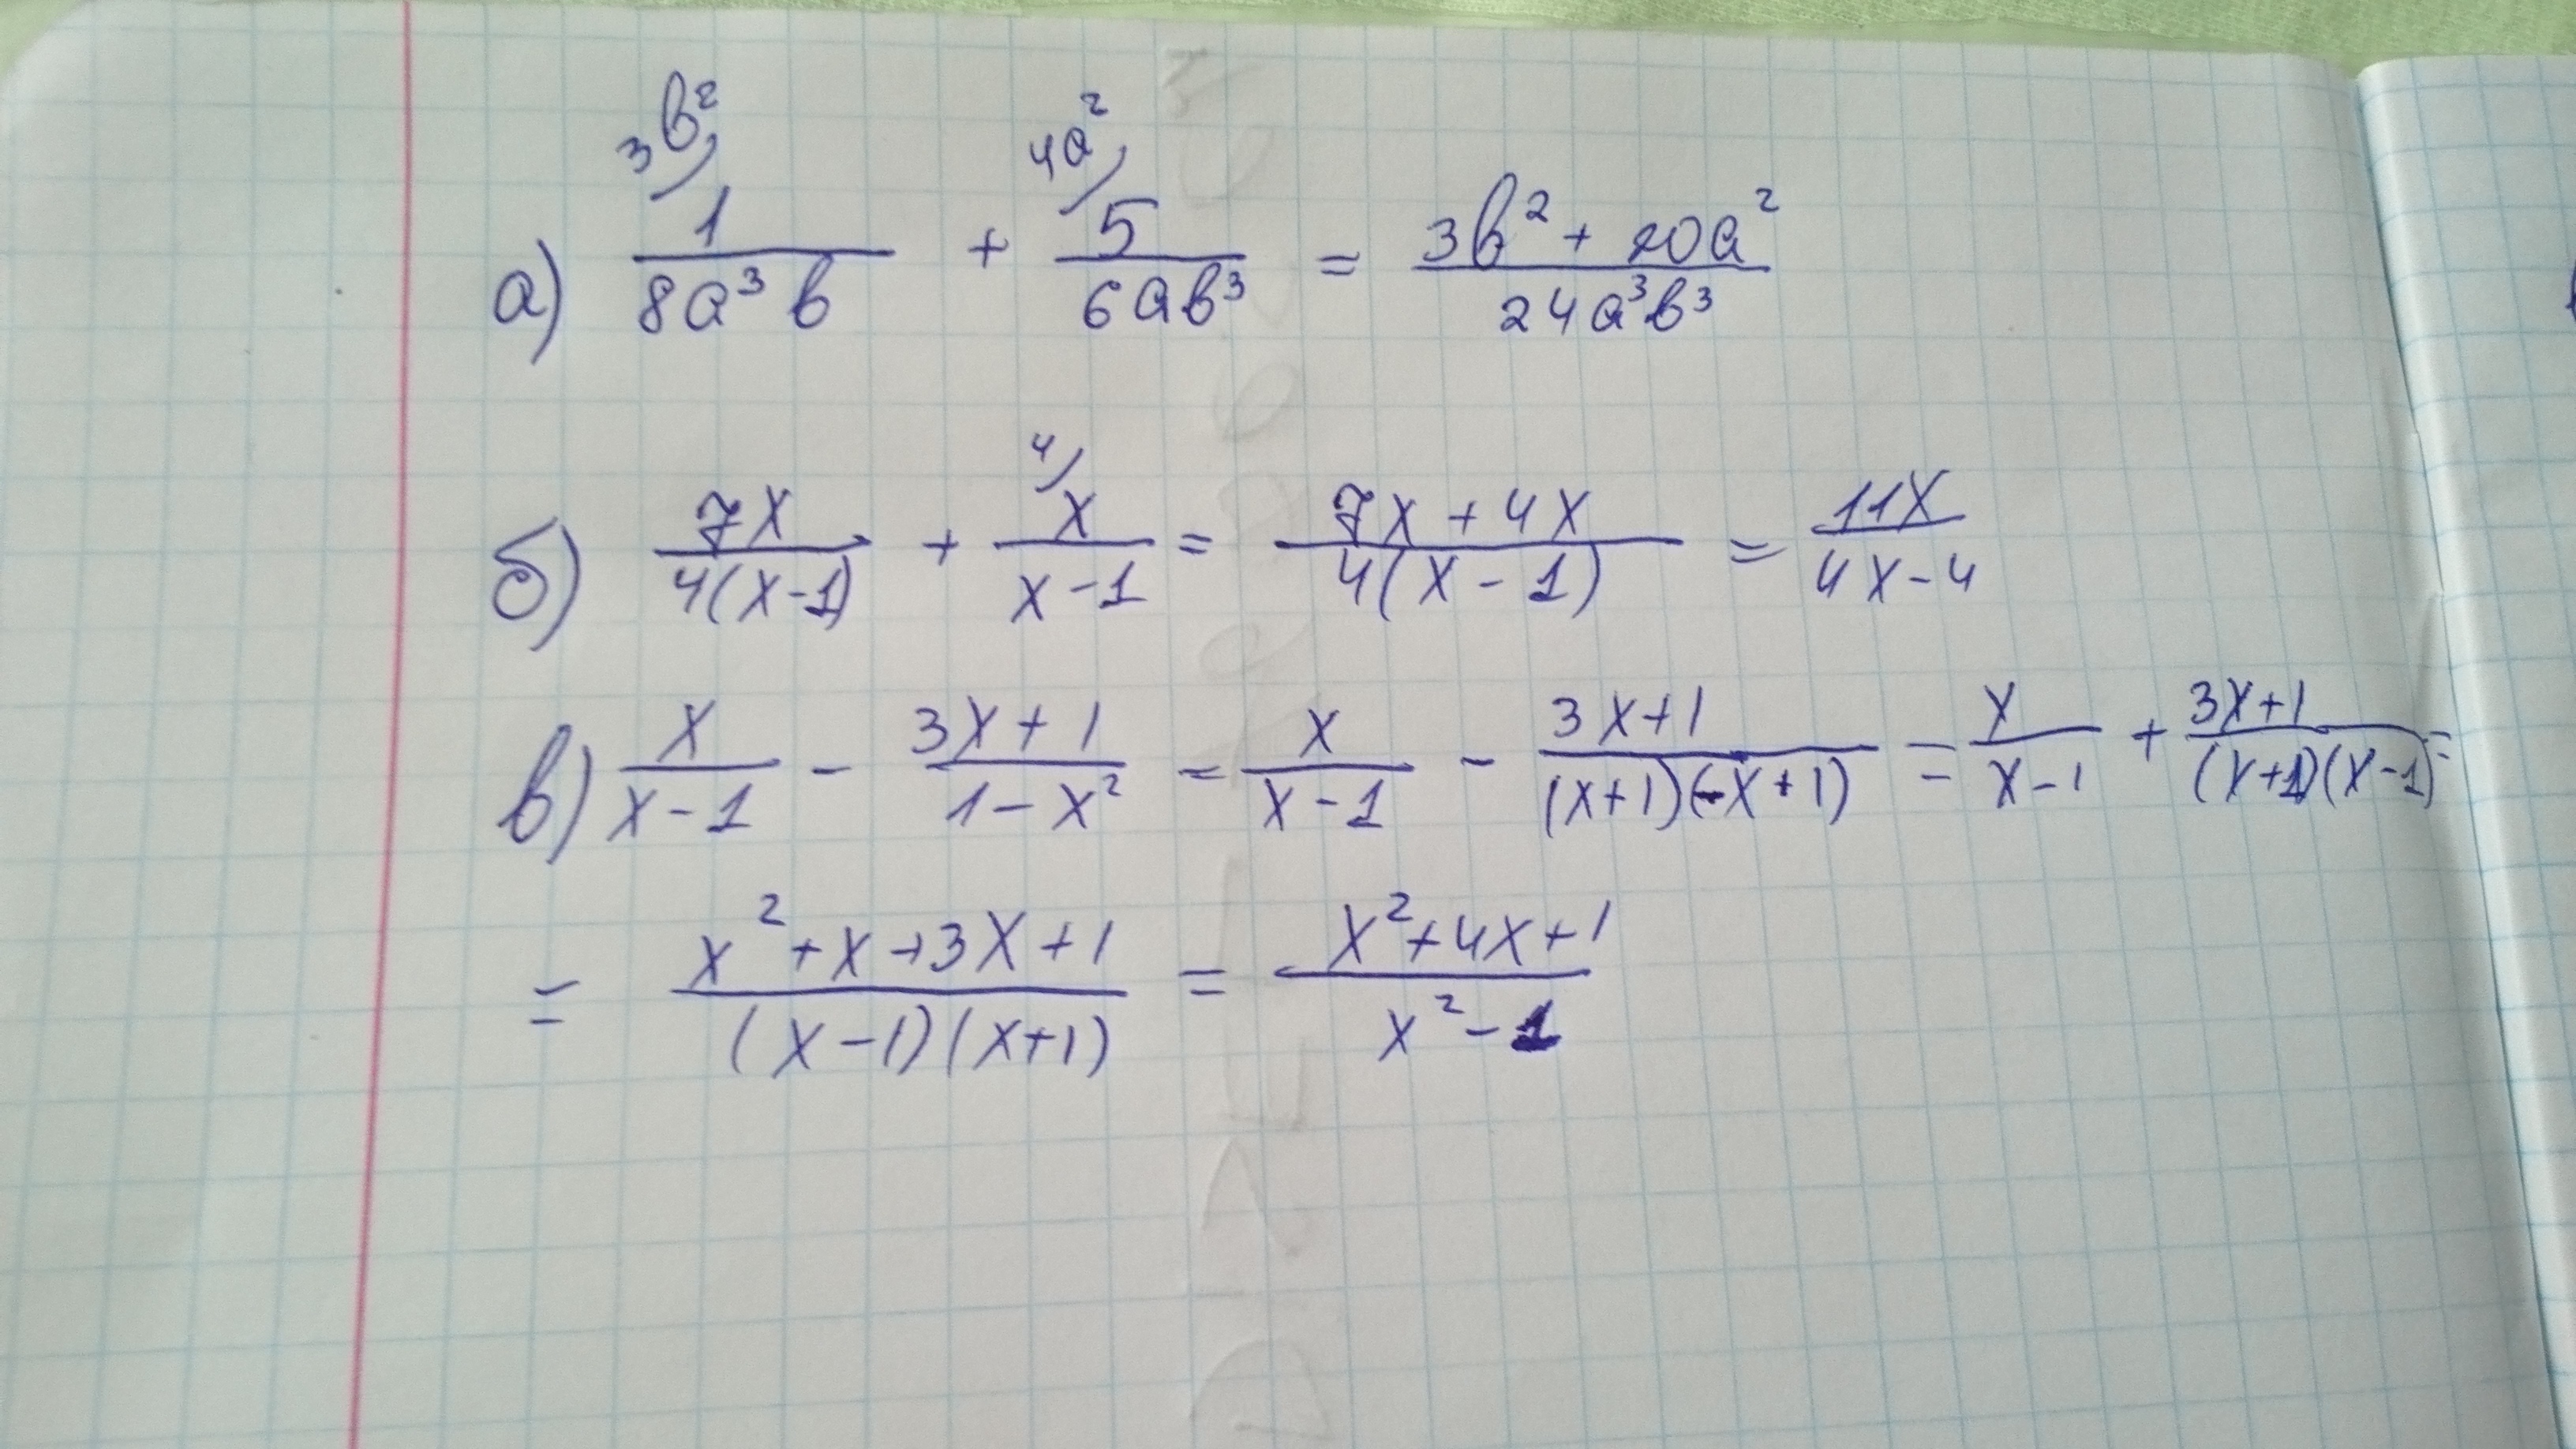 3b² 4a²
а) 1/(8a³b) + 5/(6ab³) = (3b² + 20a²)/(24a³b³)
4
б) 7x/(4(x-1)) + x/(x-1) = (7x+4x)/(4(x-1)) = 11x/(4x-4)
в) x/(x-1) - (3x+1)/(1-x²) = x/(x-1) - (3x+1)/((x+1)(-x+1)) = x/(x-1) + (3x+1)/((x+1)(x-1)) =
= (x²+x+3x+1)/((x-1)(x+1)) = (x²+4x+1)/(x²-1)